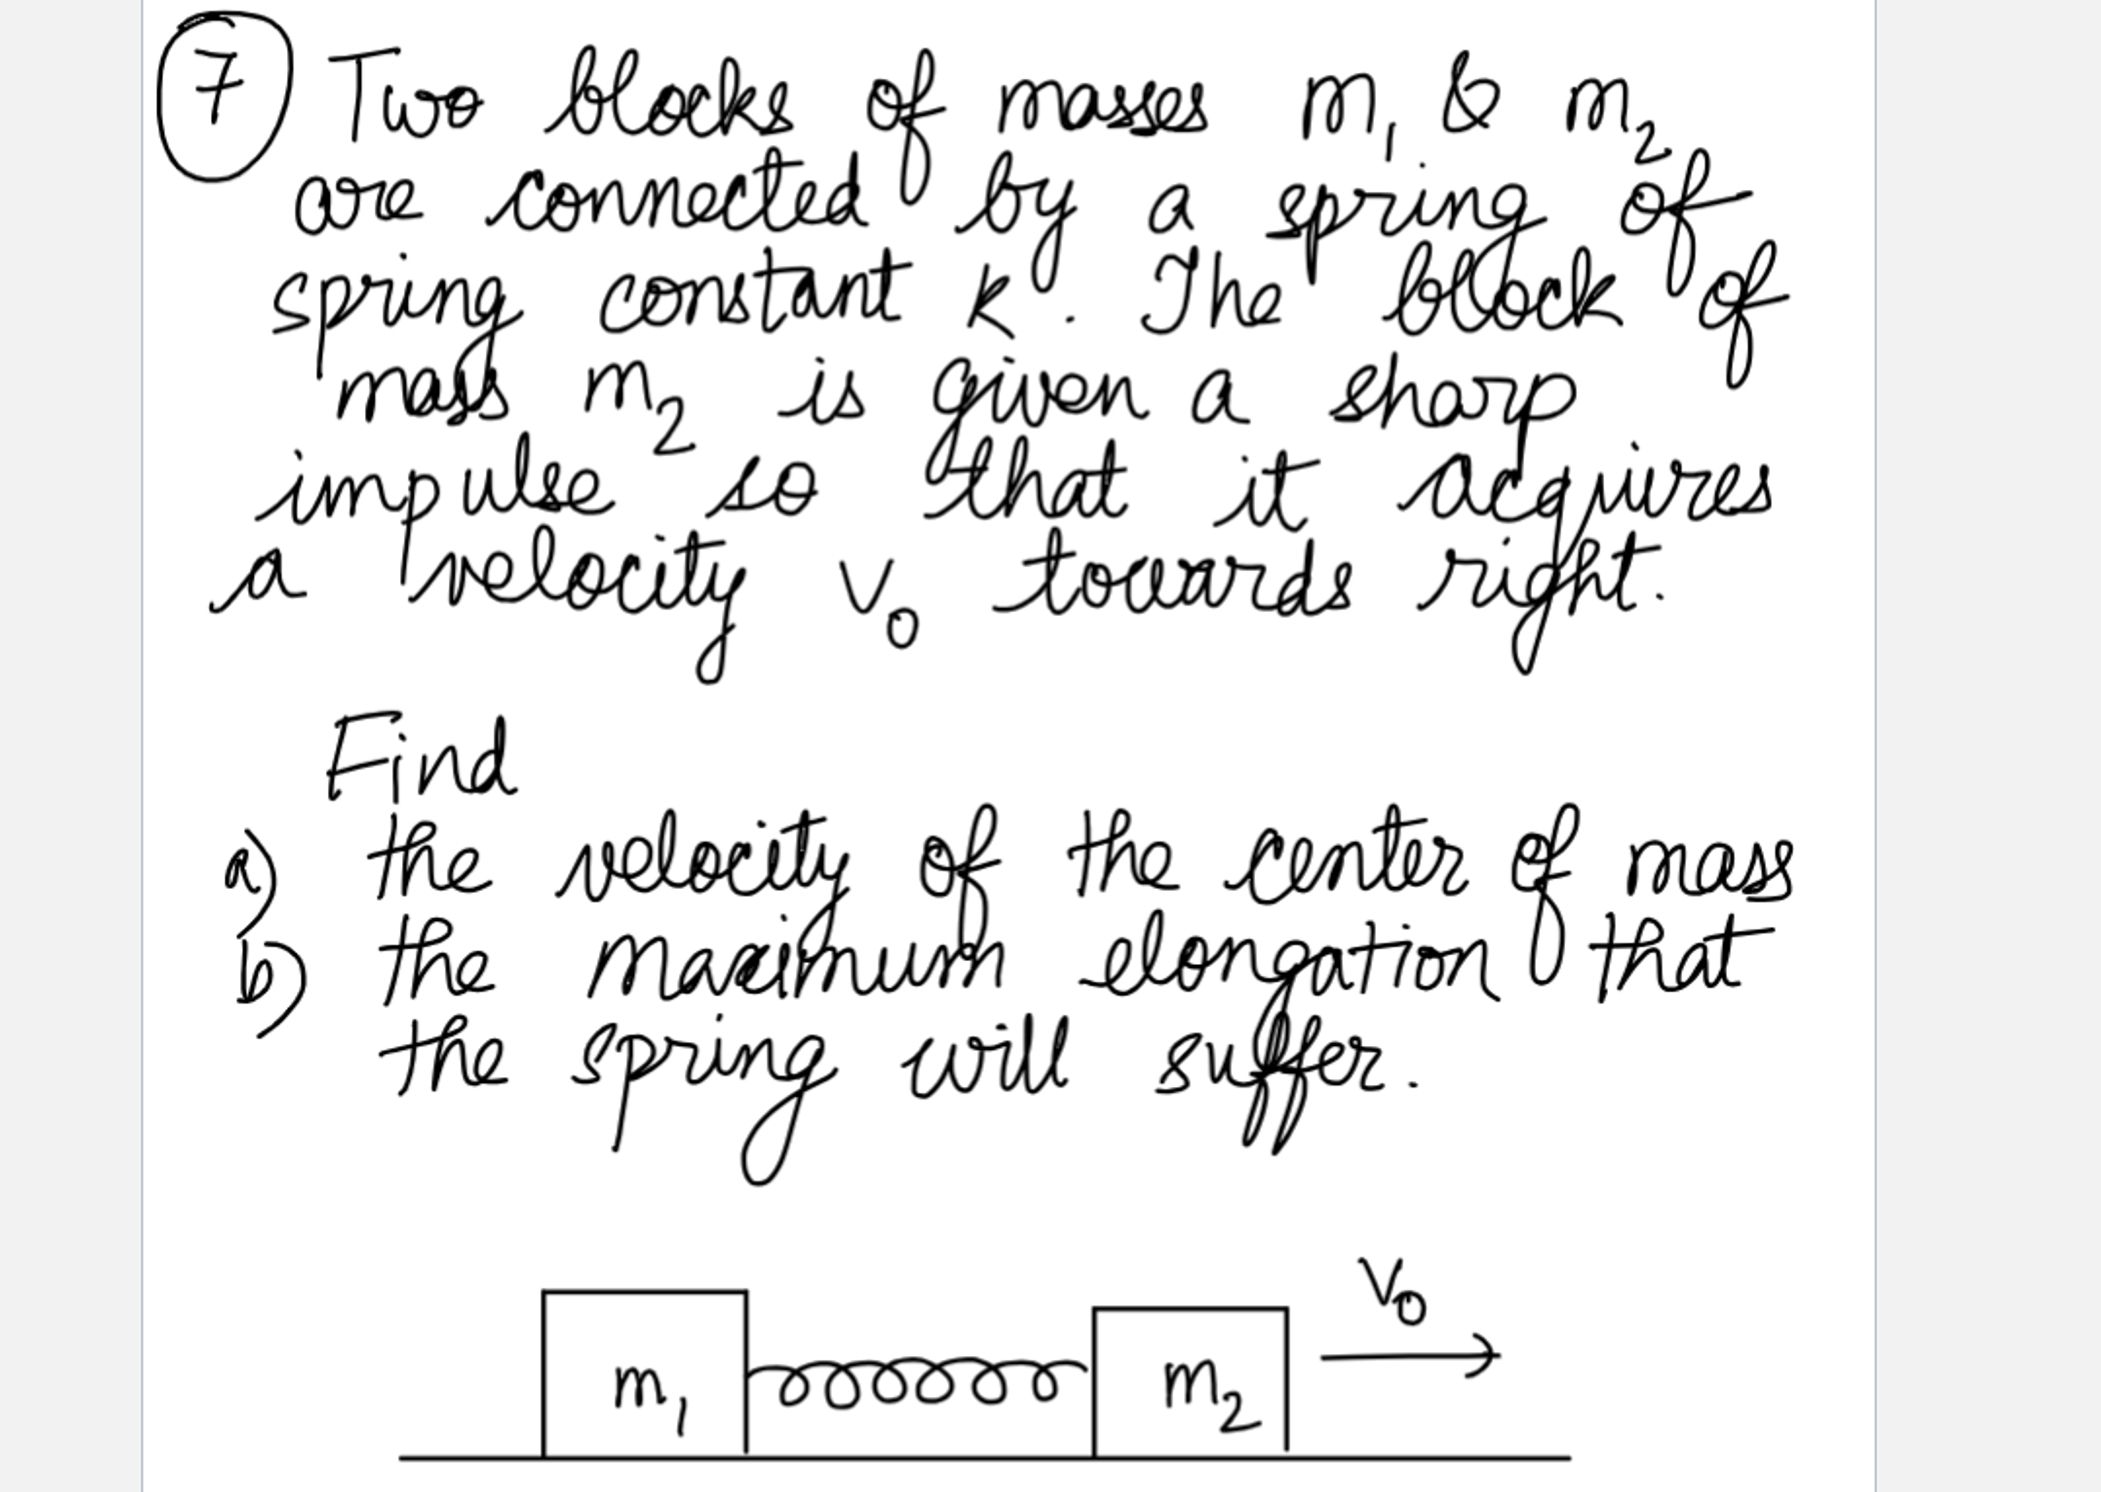 7 Two blocks of masses m₁ & m₂
are connected by a spring of
spring constant k. The block of
mass m₂ is given a sharp
impulse so that it acquires
a velocity v₀ towards right.
Find
a) the velocity of the center of mass
b) the maximum elongation that
the spring will suffer.
v₀
m₁ m₂